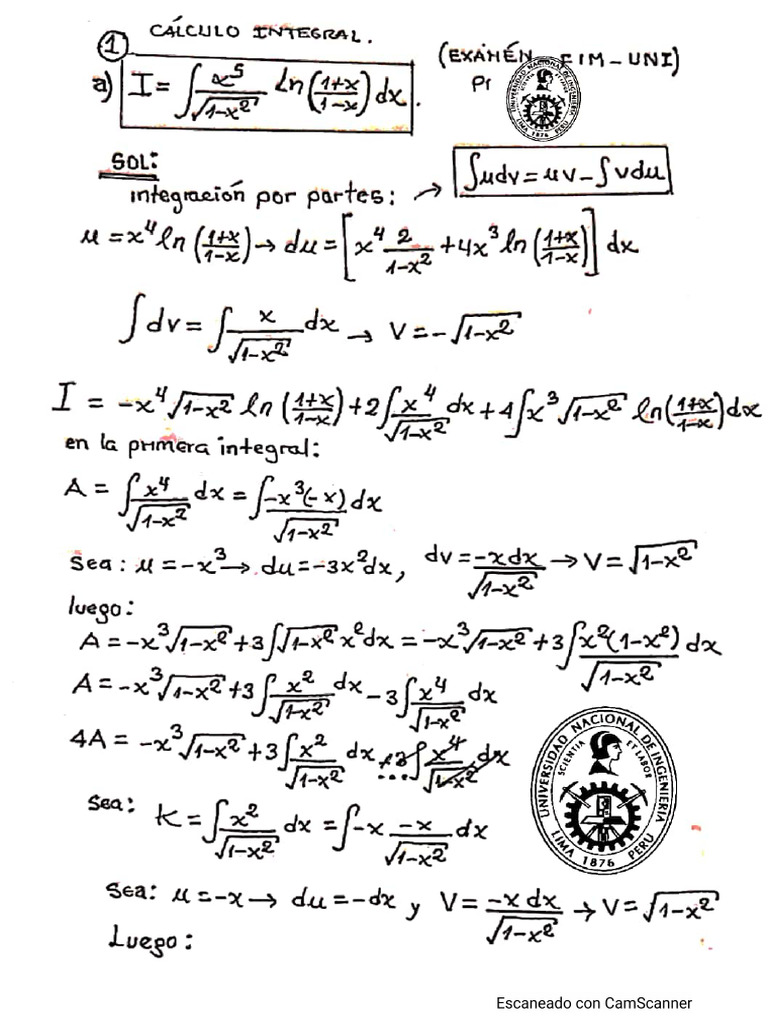 ① CÁLCULO INTEGRAL.
(EXAMÉN FIM-UNI)
a) I = ∫ x⁵/√(1-x²) ln((1+x)/(1-x)) dx.
Pr
UNIVERSIDAD NACIONAL DE INGENIERIA
LIMA 1876 PERU
SOL:
integración por partes: → ∫udv = uv - ∫vdu
u = x⁴ ln((1+x)/(1-x)) → du = [x⁴ 2/(1-x²) + 4x³ ln((1+x)/(1-x))] dx
∫dv = ∫ x/√(1-x²) dx → V = -√(1-x²)
I = -x⁴√(1-x²) ln((1+x)/(1-x)) + 2∫ x⁴/√(1-x²) dx + 4∫x³√(1-x²) ln((1+x)/(1-x)) dx
en la primera integral:
A = ∫ x⁴/√(1-x²) dx = ∫ -x³(-x)/√(1-x²) dx
Sea: u = -x³ → du = -3x²dx, dv = -xdx/√(1-x²) → V = √(1-x²)
luego:
A = -x³√(1-x²) + 3∫√(1-x²) x²dx = -x³√(1-x²) + 3∫ x²(1-x²)/√(1-x²) dx
A = -x³√(1-x²) + 3∫ x²/√(1-x²) dx - 3∫ x⁴/√(1-x²) dx
4A = -x³√(1-x²) + 3∫ x²/√(1-x²) dx ...
Sea: K = ∫ x²/√(1-x²) dx = ∫ -x -x/√(1-x²) dx
UNIVERSIDAD NACIONAL DE INGENIERIA
SCIENTIA ET LABOR
LIMA 1876 PERU
Sea: u = -x → du = -dx y V = -x dx/√(1-x²) → V = √(1-x²)
Luego:
Escaneado con CamScanner